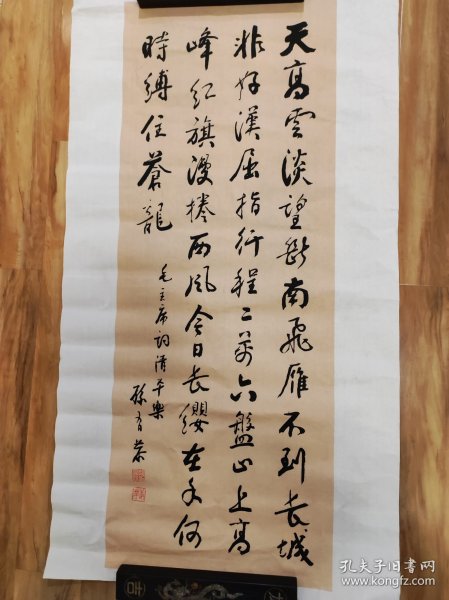 天高雲淡望斷南飛雁不到長城
非好漢屈指行程二萬六盤山上高
峰紅旗漫捲西風今日長纓在手何
時縛住蒼龍
毛主席詞清平樂
孔夫子旧书网
www.kongfz.com